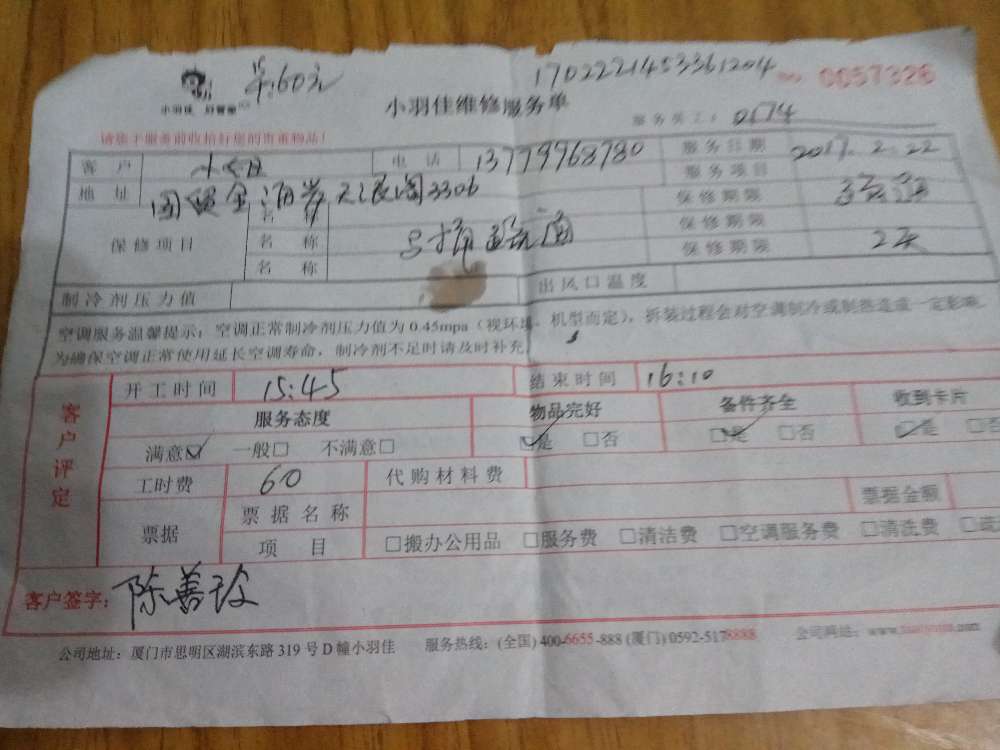 单:60元
1702221453361204
No 0057326
小羽佳 好管家
小羽佳维修服务单
服务员工: 0174
请您于服务前收拾好您的贵重物品!
客户 电话 13779968780 服务日期 2017.2.22
地址 国贸金海岸天浪阁3306 服务项目
保修项目 名称 保修期限
名称 马桶疏通 保修期限
名称 保修期限 2天
制冷剂压力值 出风口温度
空调服务温馨提示:空调正常制冷剂压力值为0.45mpa(视环境、机型而定),拆装过程会对空调制冷或制热造成一定影响,
为确保空调正常使用延长空调寿命,制冷剂不足时请及时补充
客户评定
开工时间 15:45 结束时间 16:10
服务态度 物品完好 备件齐全 收到卡片
满意☑ 一般□ 不满意□ ☑是 □否 ☑是 □否 ☑是 □否
工时费 60 代购材料费
票据 票据名称 票据金额
项目 □搬办公用品 □服务费 □清洁费 □空调服务费 □清洗费
客户签字: 陈善玲
公司地址:厦门市思明区湖滨东路319号D幢小羽佳 服务热线:(全国)400-6655-888(厦门)0592-5178888 公司网址: